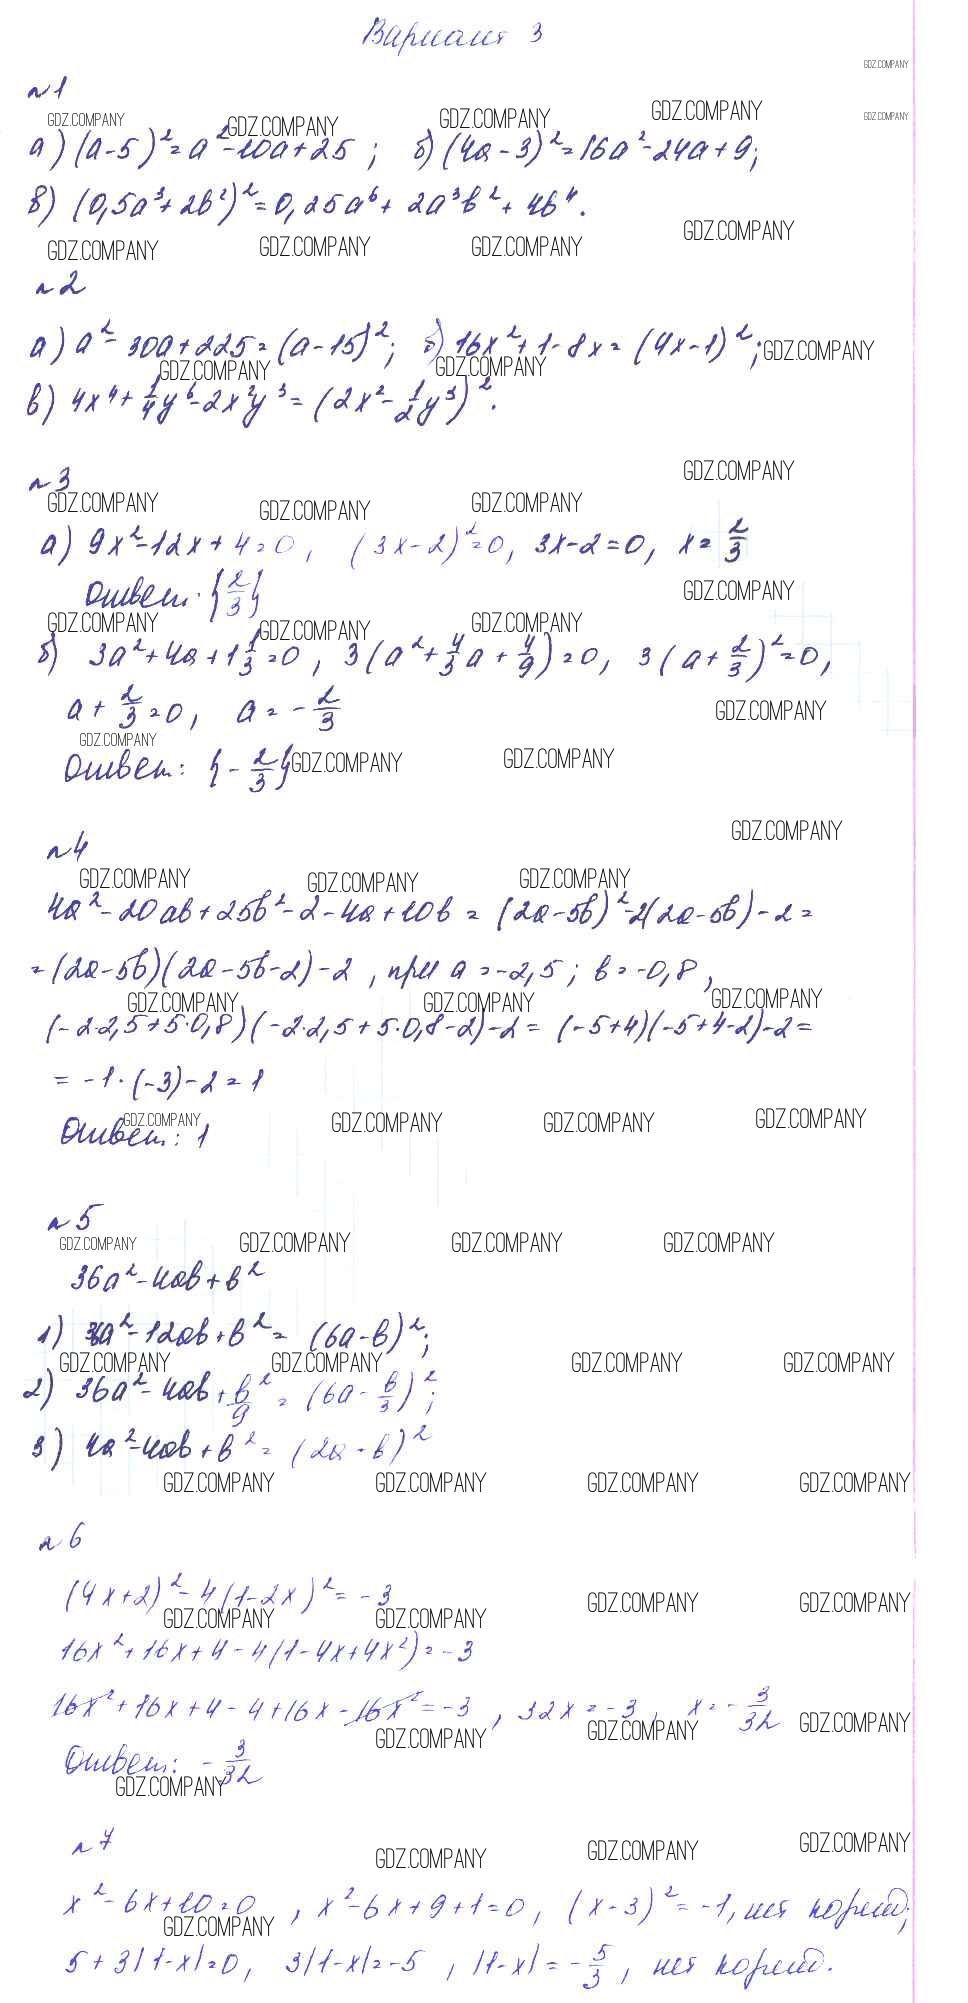 Вариант 3
GDZ.COMPANY
№1
GDZ.COMPANY GDZ.COMPANY GDZ.COMPANY GDZ.COMPANY GDZ.COMPANY
а) (a-5)²=a²-10a+25; б) (4a-3)²=16a²-24a+9;
в) (0,5a³+2b²)²=0,25a⁶+2a³b²+4b⁴.
GDZ.COMPANY GDZ.COMPANY GDZ.COMPANY GDZ.COMPANY
№2
а) a²-30a+225=(a-15)²; б) 16x²+1-8x=(4x-1)²; GDZ.COMPANY
GDZ.COMPANY GDZ.COMPANY
в) 4x⁴+1/4y⁶-2x²y³=(2x²-1/2y³)².
GDZ.COMPANY
№3
GDZ.COMPANY GDZ.COMPANY GDZ.COMPANY
а) 9x²-12x+4=0, (3x-2)²=0, 3x-2=0, x=2/3
Ответ: {2/3} GDZ.COMPANY
GDZ.COMPANY GDZ.COMPANY GDZ.COMPANY
б) 3a²+4a+1 1/3=0, 3(a²+4/3a+4/9)=0, 3(a+2/3)²=0,
a+2/3=0, a=-2/3 GDZ.COMPANY
GDZ.COMPANY
Ответ: {-2/3} GDZ.COMPANY GDZ.COMPANY
GDZ.COMPANY
№4
GDZ.COMPANY GDZ.COMPANY GDZ.COMPANY
4a²-20ab+25b²-2-4a+10b=(2a-5b)²-2(2a-5b)-2=
=(2a-5b)(2a-5b-2)-2, при a=-2,5; b=-0,8,
GDZ.COMPANY GDZ.COMPANY GDZ.COMPANY
(-2·2,5+5·0,8)(-2·2,5+5·0,8-2)-2=(-5+4)(-5+4-2)-2=
=-1·(-3)-2=1
GDZ.COMPANY GDZ.COMPANY GDZ.COMPANY GDZ.COMPANY
Ответ: 1
№5
GDZ.COMPANY GDZ.COMPANY GDZ.COMPANY GDZ.COMPANY
36a²-4ab+b²
1) 36a²-12ab+b²=(6a-b)²;
GDZ.COMPANY GDZ.COMPANY GDZ.COMPANY GDZ.COMPANY
2) 36a²-4ab+b²/9=(6a-b/3)²;
3) 4a²-4ab+b²=(2a-b)²
GDZ.COMPANY GDZ.COMPANY GDZ.COMPANY GDZ.COMPANY
№6
(4x+2)²-4(1-2x)²=-3
GDZ.COMPANY GDZ.COMPANY GDZ.COMPANY GDZ.COMPANY
16x²+16x+4-4(1-4x+4x²)=-3
16x²+16x+4-4+16x-16x²=-3, 32x=-3, x=-3/32
GDZ.COMPANY GDZ.COMPANY GDZ.COMPANY
Ответ: -3/32
GDZ.COMPANY
№7
GDZ.COMPANY GDZ.COMPANY GDZ.COMPANY
x²-6x+10=0, x²-6x+9+1=0, (x-3)²=-1, нет корней;
GDZ.COMPANY
5+3|1-x|=0, 3|1-x|=-5, |1-x|=-5/3, нет корней.